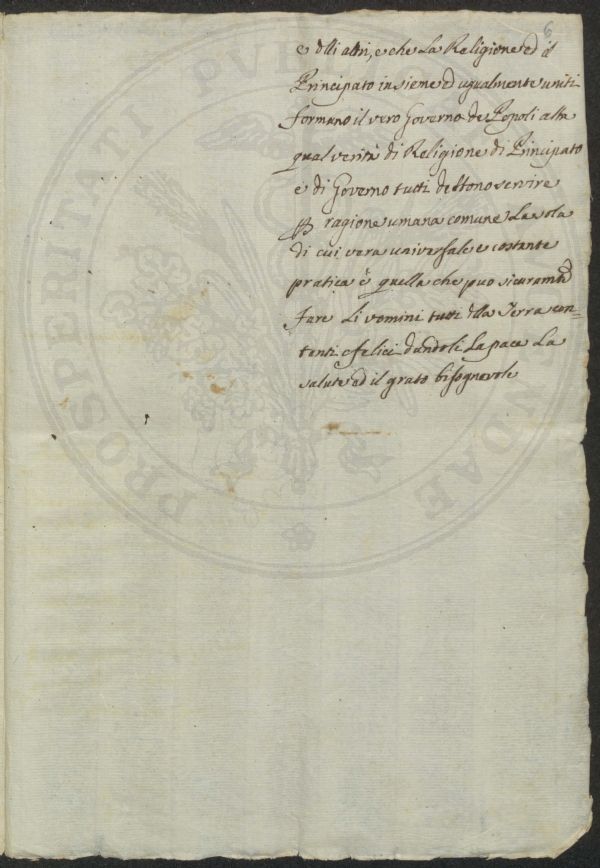 6
e dlli altri, e che La Religione ed il
Principato insieme ed ugualmente uniti
formano il vero Governo de Popoli alla
qual verità di Religione di Principato
e di Governo tutti devono servire
ragione umana comune La sola
di cui vera universale e costante
pratica è quella che può sicuramte
fare Li uomini tutti dlla Terra con=
tenti e felici dandoli La pace La
salute ed il grato bisognevole
PROSPERITATI PUB
NDAE